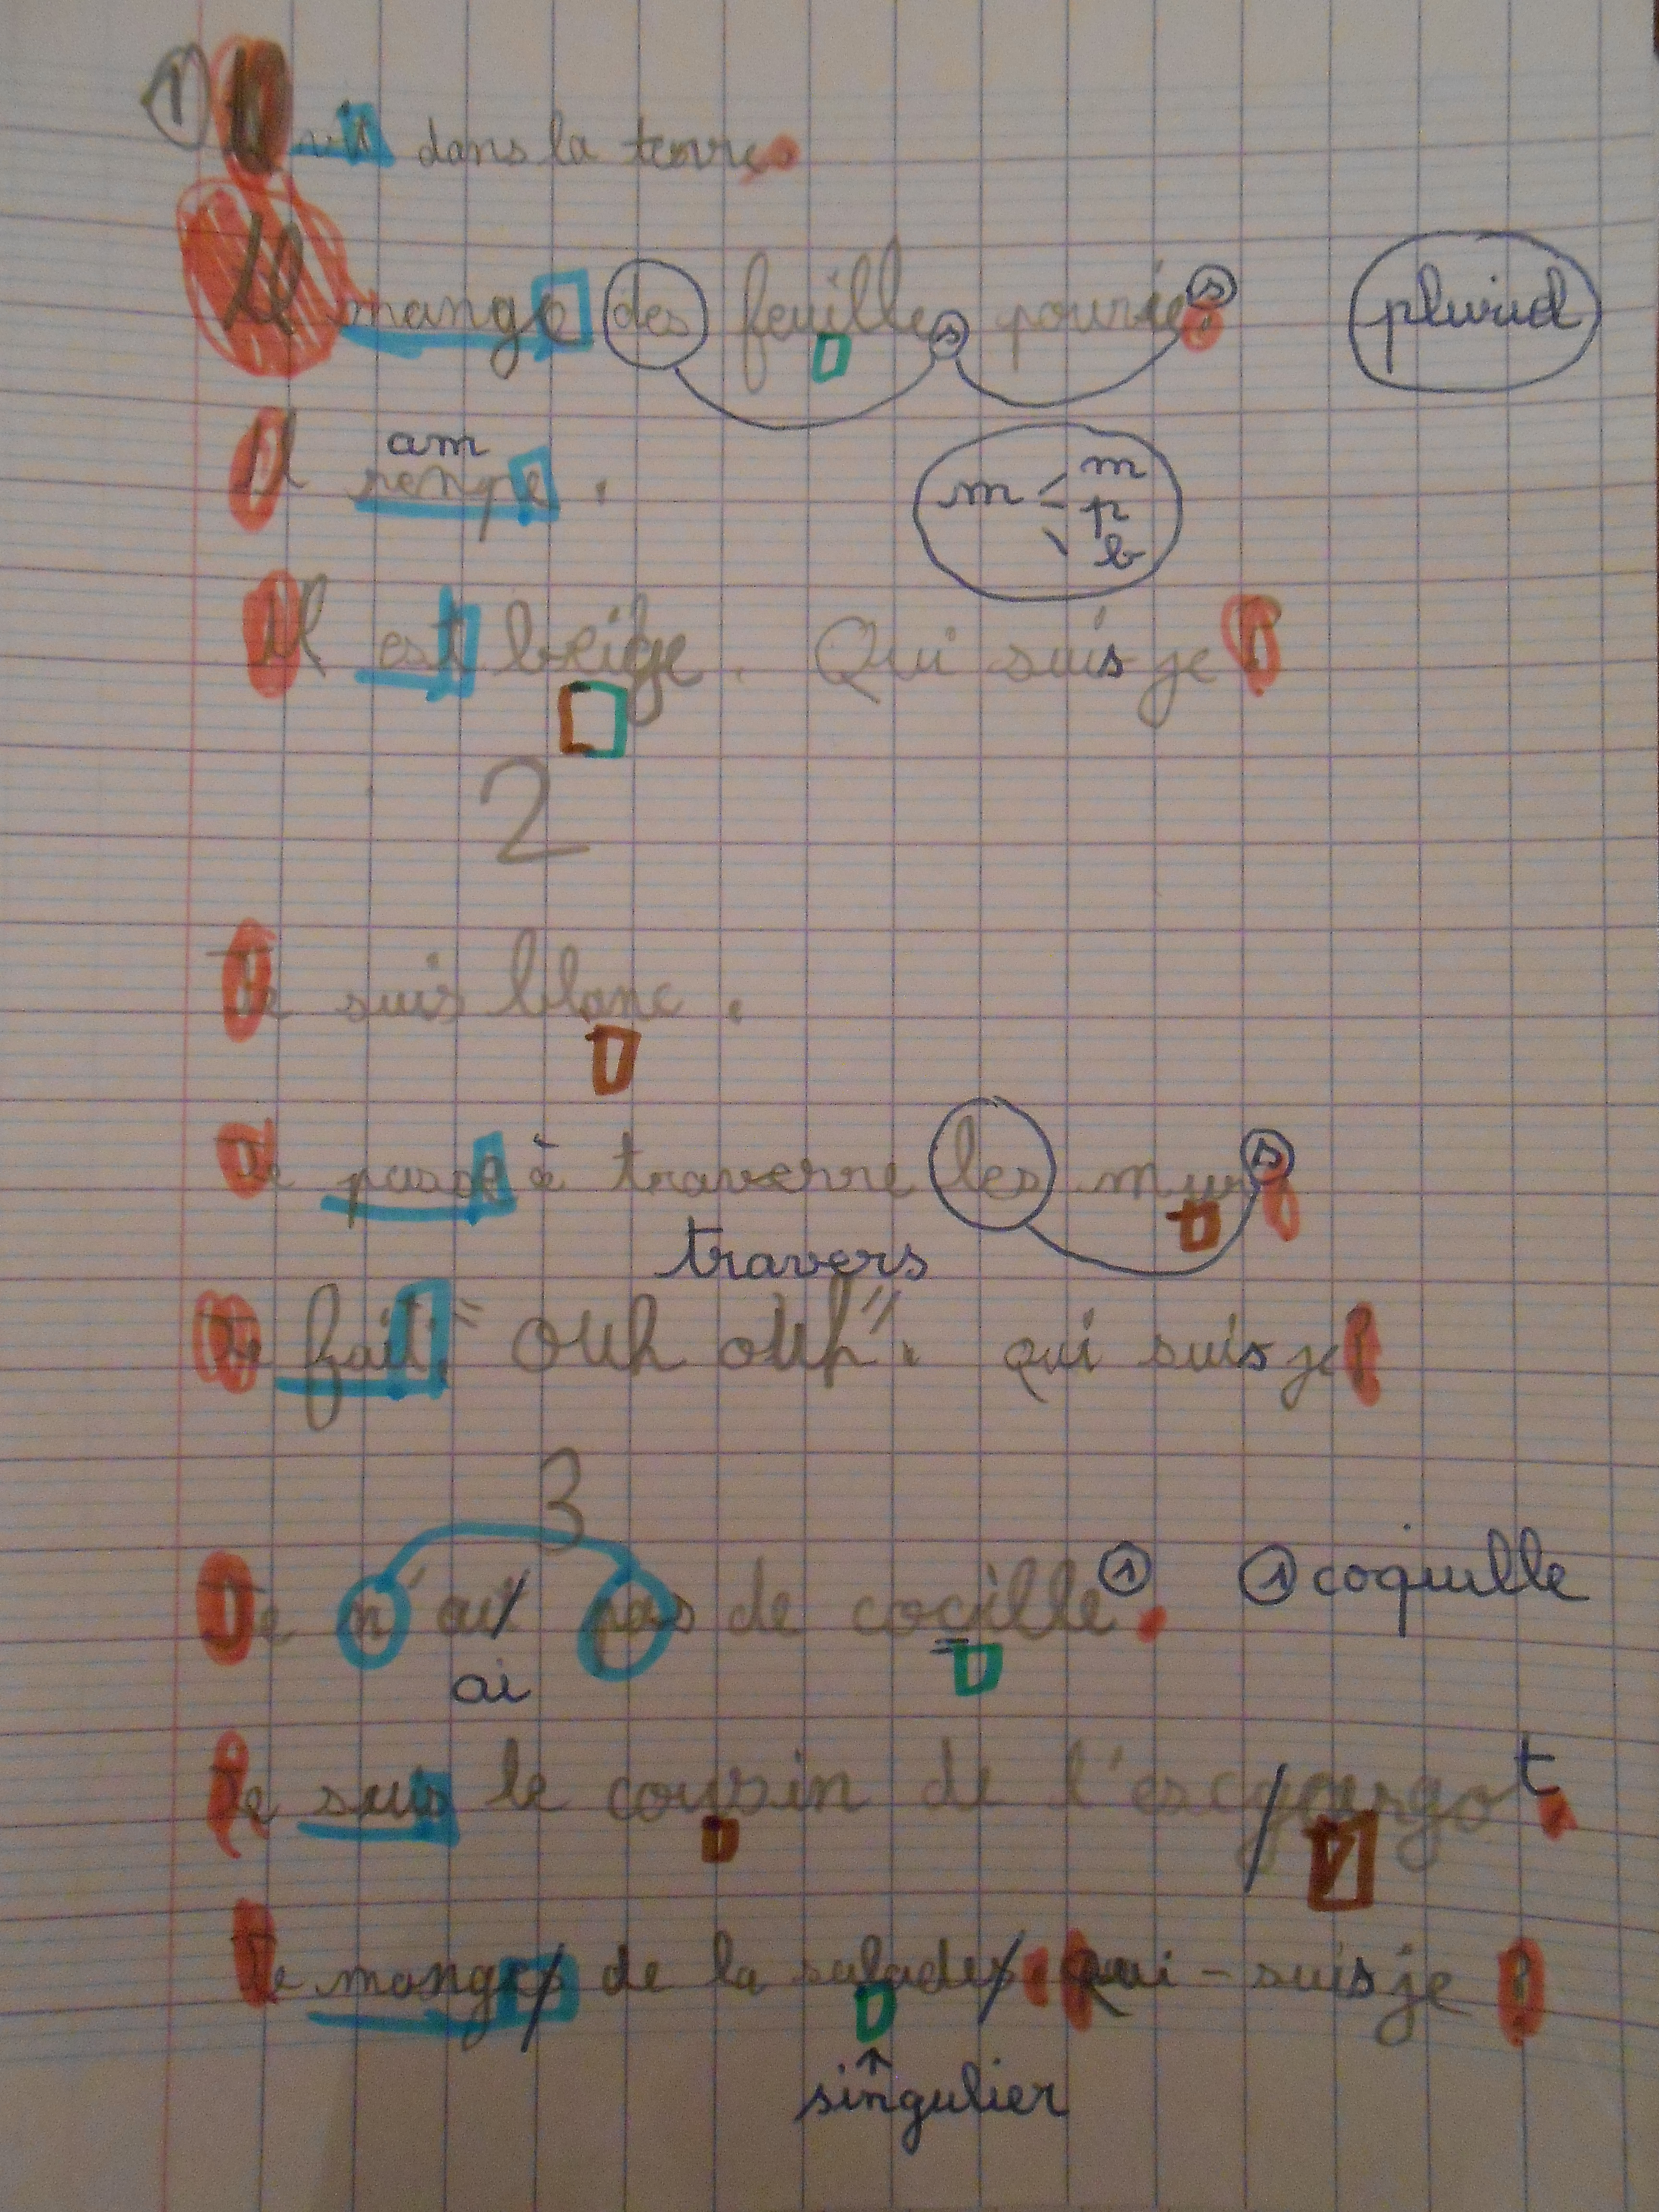 ① Il vit dans la terre.
Il mange des feuilles pouries. pluriel
Il rempe. am m m p b
Il est beige. Qui suis je ?
2
Je suis blanc.
Je passe à traverre les murs.
travers
Je fait " Ouh ouh ". qui suis je ?
3
Je n'ait pas de cocille ①. ① coquille
ai
Je suis le cousin de l'escgourgot.
Je manges de la salades. Qui - suis je ?
singulier